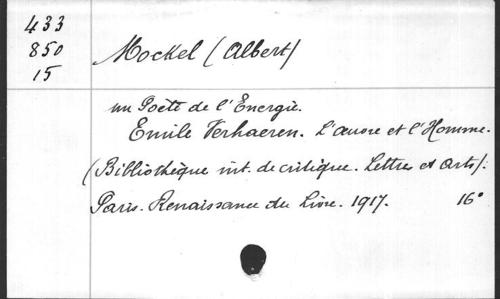 433
850
15
Mockel (Albert)
un Poète de l'Energie.
Emile Verhaeren. L'œuvre et l'Homme.
(Bibliothèque int. de critique. Lettres et Arts).
Paris. Renaissance du Livre. 1917. 16°